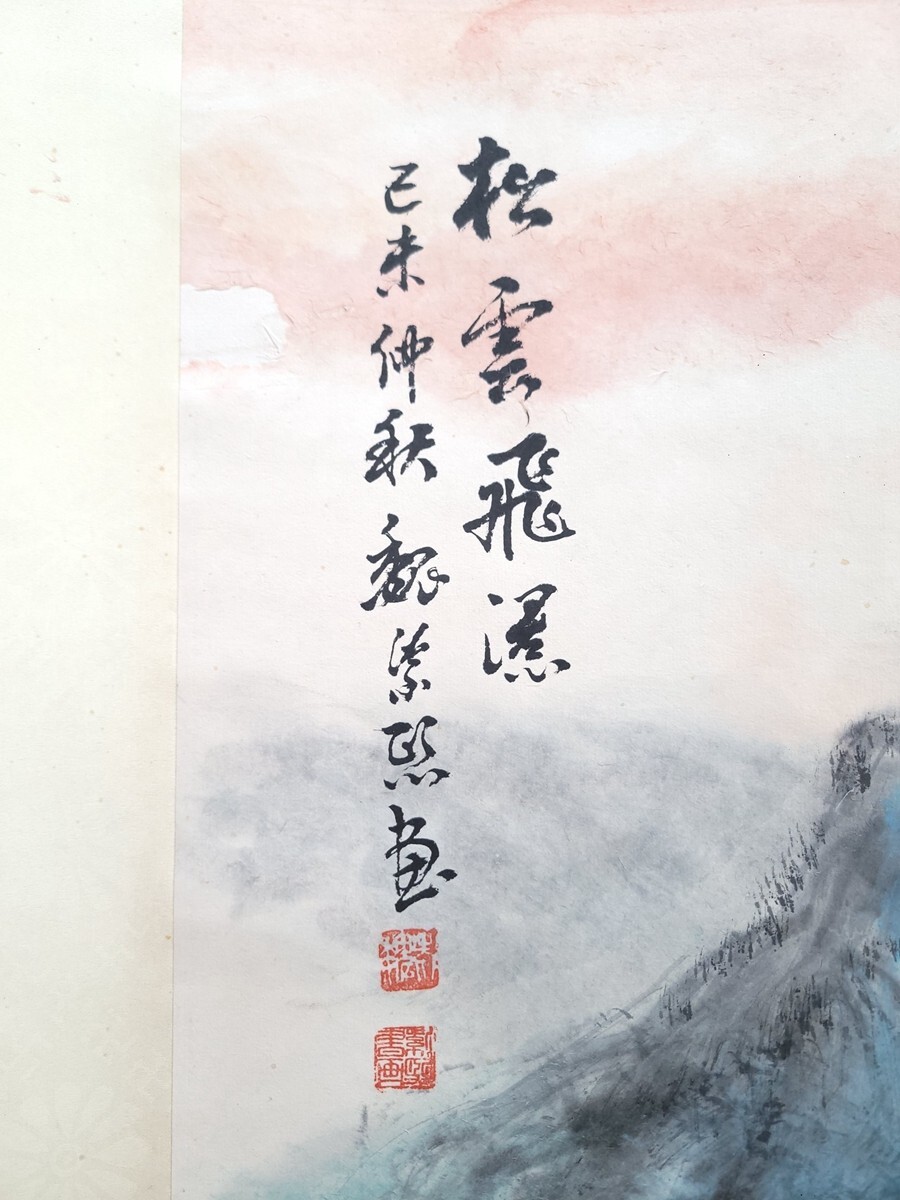 松雲飛瀑
己未仲秋魏紫熙畫